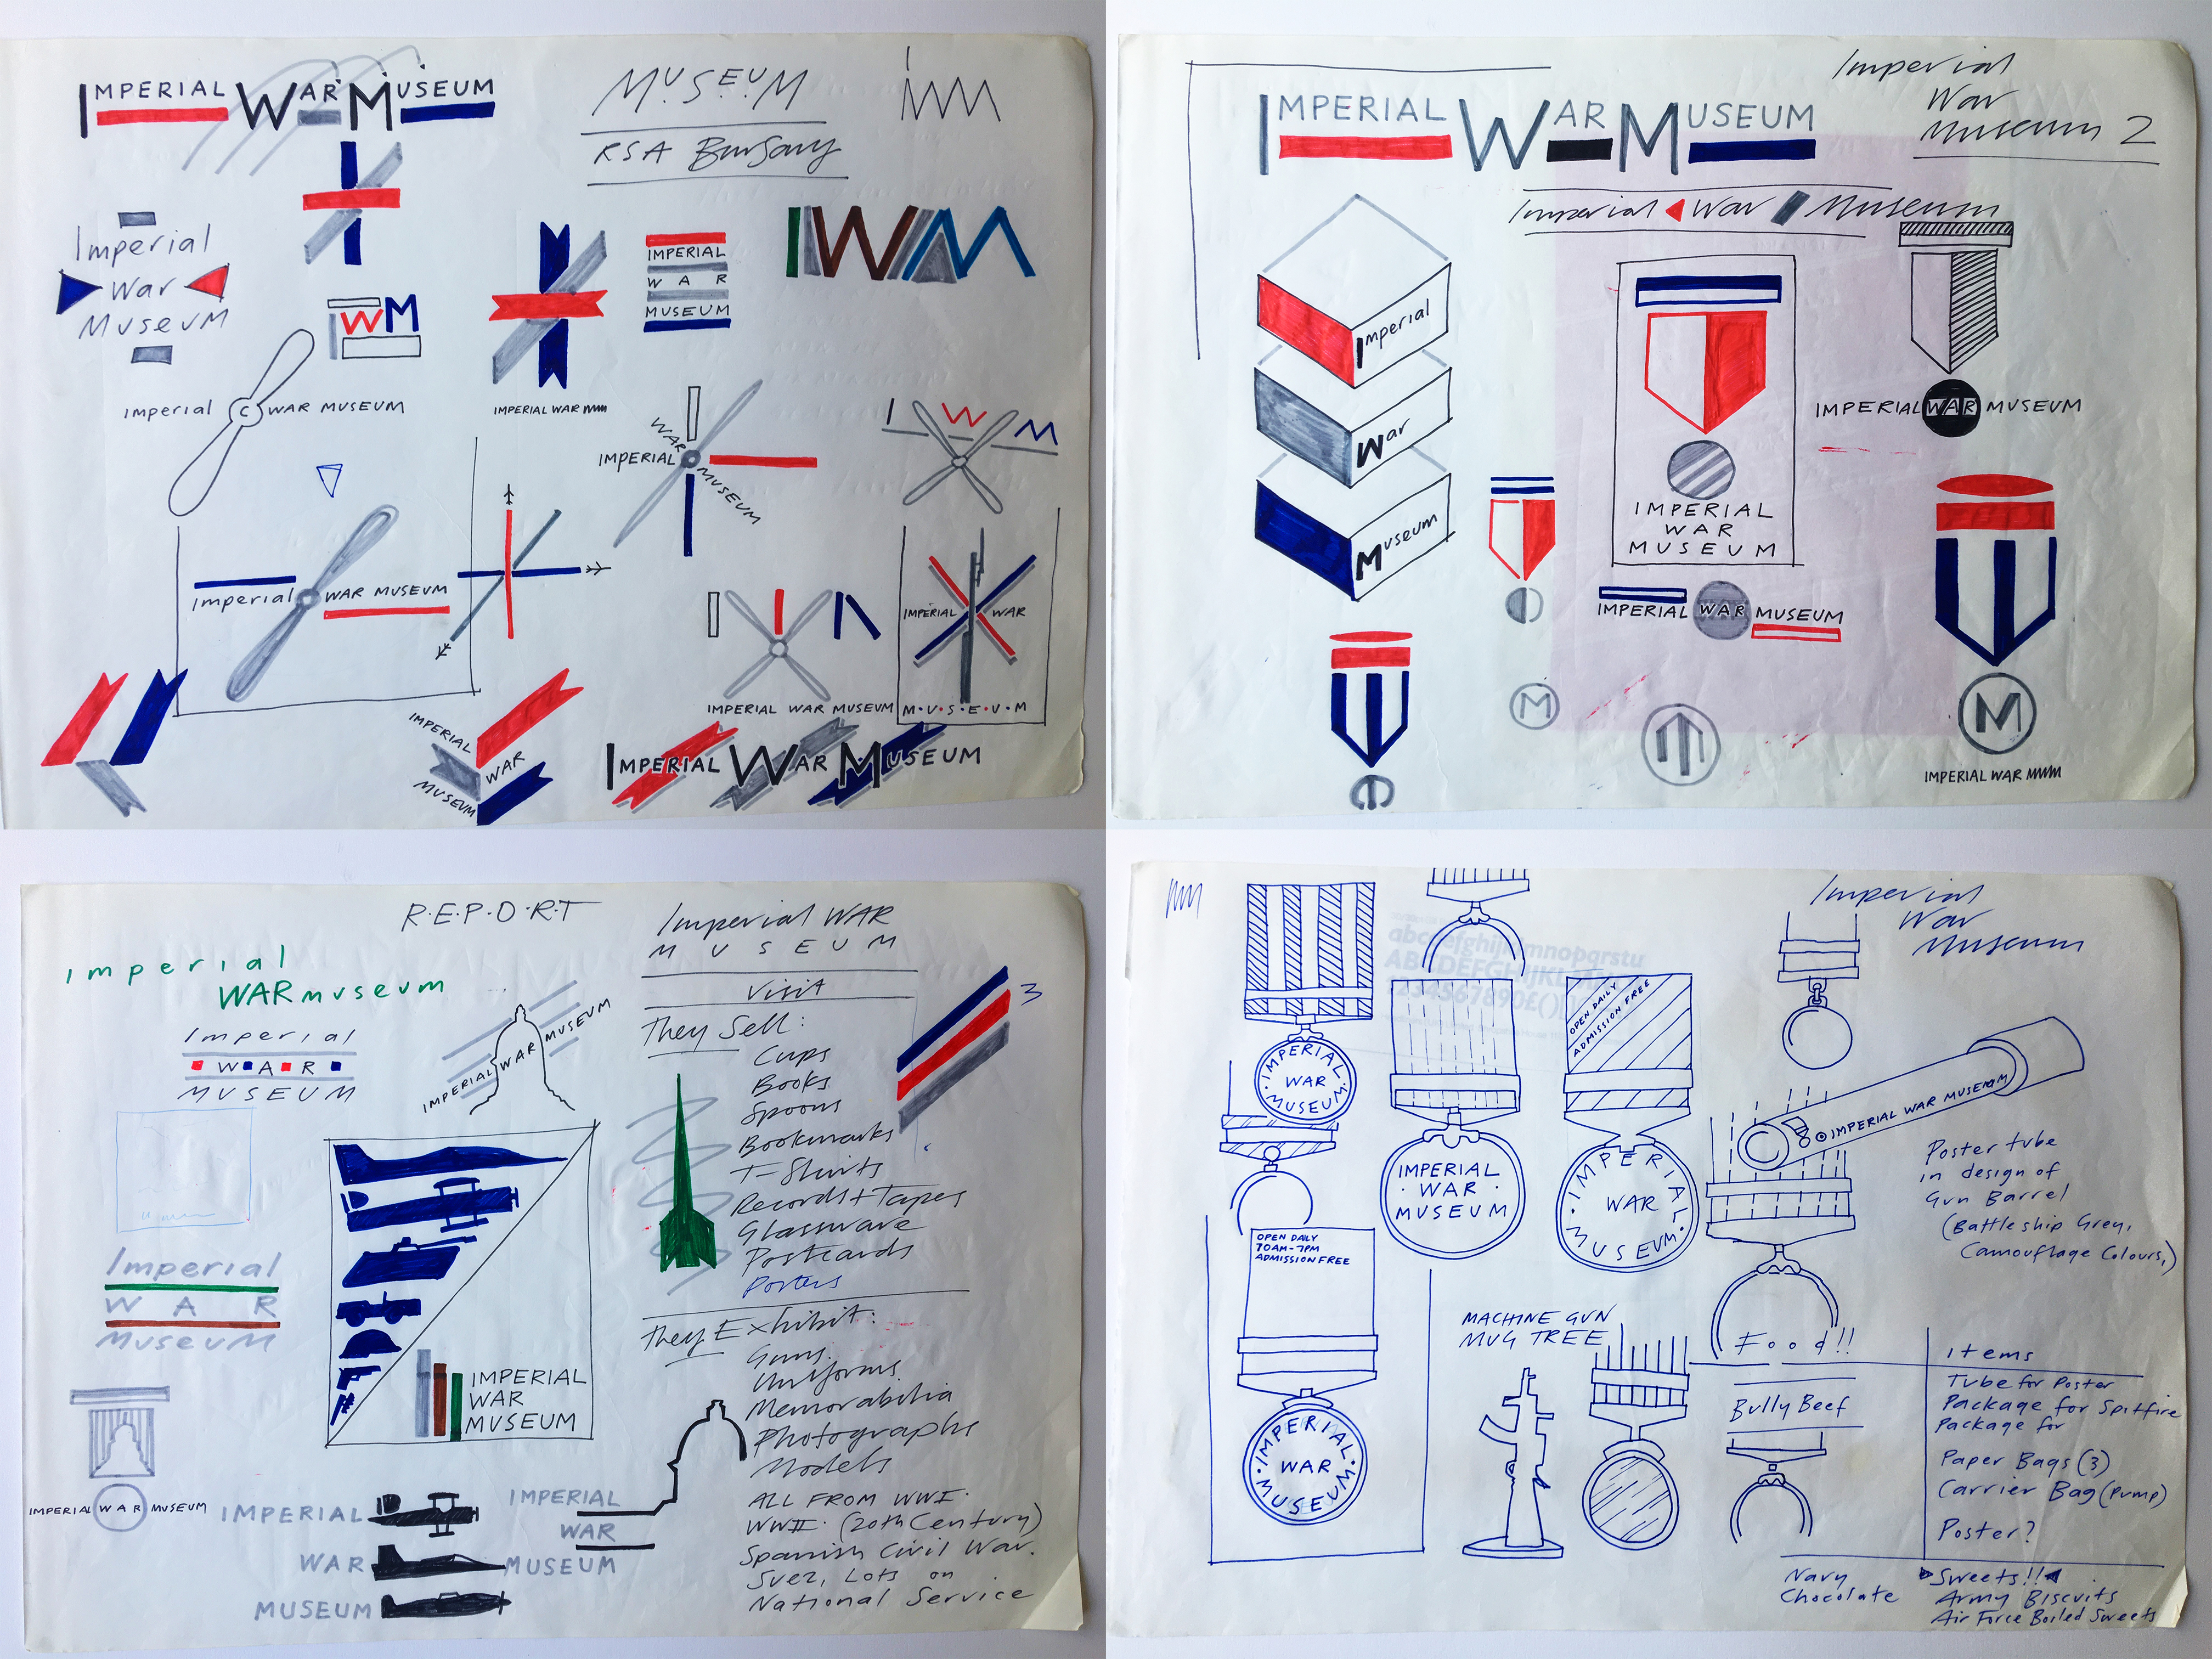 IMPERIAL WAR MUSEUM
MUSEUM
RSA Bursary
IWM
Imperial
War
Museum
IWM
IMPERIAL
WAR
MUSEUM
IWM
IMPERIAL WAR
Imperial C WAR MUSEUM
WAR
IMPERIAL
MUSEUM
I W M
Imperial WAR MUSEUM
IMPERIAL WAR
M·U·S·E·U·M
IMPERIAL WAR MUSEUM
IMPERIAL
WAR
MUSEUM
IMPERIAL WAR MUSEUM
IMPERIAL WAR MUSEUM
Imperial
War
Museum 2
Imperial War Museum
Imperial
War
Museum
IMPERIAL WAR MUSEUM
IMPERIAL
WAR
MUSEUM
IMPERIAL WAR MUSEUM
M
M
IMPERIAL WAR
R·E·P·O·R·T
imperial
WAR museum
Imperial
WAR
MUSEUM
IMPERIAL WAR MUSEUM
Imperial WAR
MUSEUM
Visit
3
They Sell:
Cups
Books
Spoons
Bookmarks
T-Shirts
Records + Tapes
Glassware
Postcards
Posters
They Exhibit:
Guns.
Uniforms.
Memorabilia
Photographs
Models
ALL FROM WWI.
WWII. (20th Century)
Spanish Civil War.
Suez, Lots on
National Service
Imperial
WAR
MUSEUM
IMPERIAL
WAR
MUSEUM
IMPERIAL WAR MUSEUM
IMPERIAL
WAR
MUSEUM
IMPERIAL
WAR
MUSEUM
Imperial
War
Museum
abcdefghijklmnopqrstu
IMPERIAL
WAR
MUSEUM
IMPERIAL
WAR
MUSEUM
OPEN DAILY
ADMISSION FREE
IMPERIAL
WAR
MUSEUM
IMPERIAL WAR MUSEUM
Poster tube
in design of
Gun Barrel
(Battleship Grey,
Camouflage Colours,)
OPEN DAILY
10AM-7PM
ADMISSION FREE
IMPERIAL
WAR
MUSEUM
MACHINE GUN
MUG TREE
Food!!
Bully Beef
Items
Tube for Poster
Package for Spitfire
Package for
Paper Bags (3)
Carrier Bag (Pump)
Poster?
Navy
Chocolate
Sweets!!
Army Biscuits
Air Force Boiled Sweets